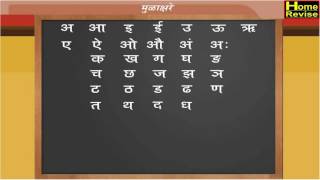 मुळाक्षरे
Home
Revise
अ आ इ ई उ ऊ ऋ
ए ऐ ओ औ अं अः
क ख ग घ ङ
च छ ज झ ञ
ट ठ ड ढ ण
त थ द ध